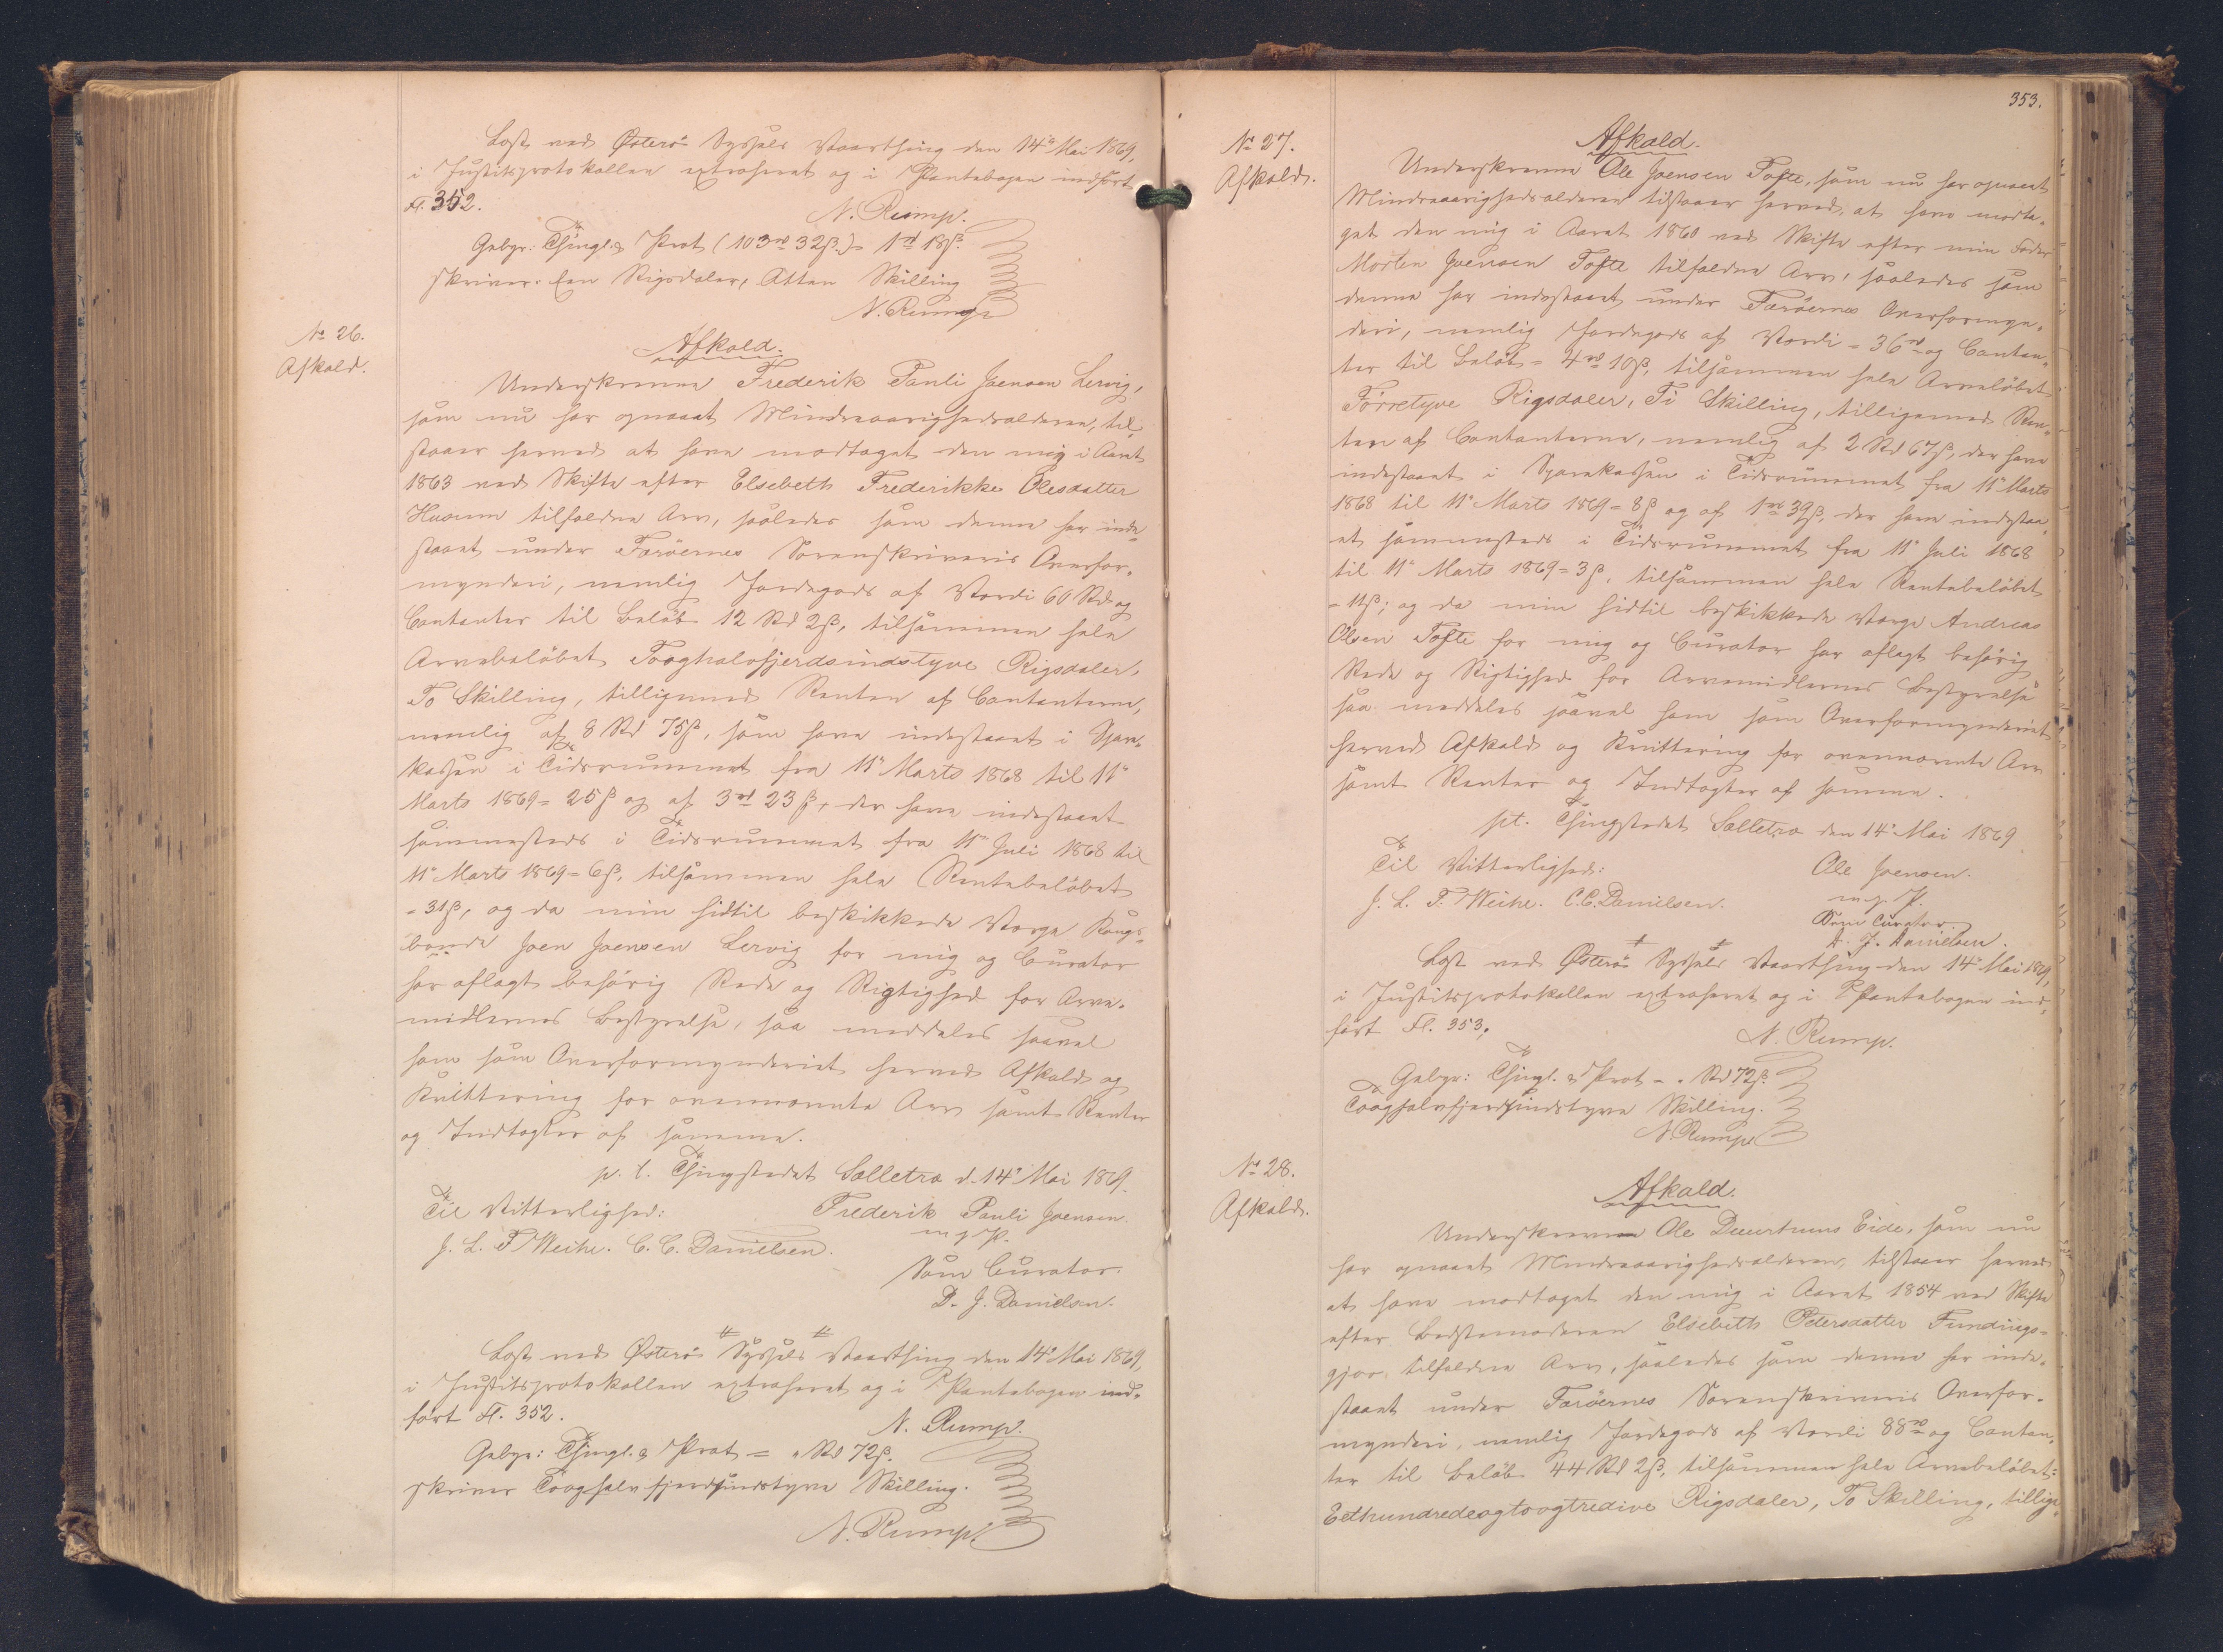 Læst ved Østerø Syssels Vaarthing den 14de Mai 1869,
i Justitsprotokollen extraheret og i Pantebogen indført
Fl. 352.
N. Rump.
Gebyr: Thingl. & Prot. (103rd 32ß.) 1rd 18ß.
skriver: Een Rigsdaler, Atten Skilling
N. Rump
No 26.
Afkald.
Afkald.
Underskrevne Frederik Pauli Joensen Lervig,
som nu har opnaaet Mindreaarighedsalderen, til-
staaer herved at have modtaget den mig i Aaret
1863 ved Skifte efter Elsebeth Frederikke Olesdatter
Husum tilfaldne Arv, saaledes som denne har inde-
staaet under Færøernes Sorenskriveris Overfor-
mynderi, nemlig Jordegods af Værdi 60 Rd og
Contanter til Beløb 12 Rd 2ß, tilsammen hele
Arvebeløbet Tooghalvfjerdsindstyve Rigsdaler,
To Skilling, tilligemed Renten af Contanterne,
nemlig af 8 Rd 75ß, som have indestaaet i Spare-
kassen i Tidsrummet fra 11te Marts 1868 til 11te
Marts 1869 = 25ß og af 3rd 23ß, der have indestaaet
sammesteds i Tidsrummet fra 11te Juli 1868 til
11te Marts 1869 = 6ß, tilsammen hele Rentebeløbet
= 31ß, og da min hidtil beskikkede Værge Kongs-
bonde Joen Joensen Lervig for mig og Curator
har aflagt behørig Rede og Rigtighed for Arve-
midlernes Bestyrelse, saa meddeles saavel
ham som Overformynderiet herved Afkald og
Kvittering for ovennævnte Arv samt Renter
og Indtægter af samme.
p. t. Thingstedet Selletræ d. 14de Mai 1869.
Til Vitterlighed: Frederik Pauli Joensen.
J. L. F. Weihe. C. C. Danielsen. m. f. P.
Som Curator.
D. J. Danielsen.
Læst ved Østerø Syssels Vaarthing den 14de Mai 1869,
i Justitsprotokollen extraheret og i Pantebogen ind-
ført Fl. 352.
N. Rump.
Gebyr: Thingl. & Prot = " Rd 72ß.
skriver Tooghalvfjerdsindstyve Skilling.
N. Rump.
353.
No 27.
Afkald.
Afkald.
Underskrevne Ole Joensen Tofte, som nu har opnaaet
Mindreaarighedsalderen tilstaaer herved, at have modta-
get den mig i Aaret 1860 ved Skifte efter min Fader
Morten Joensen Tofte tilfaldne Arv, saaledes som
denne har indestaaet under Færøernes Overformyn-
deri, nemlig Jordegods af Værdi = 36rd og Contan-
ter til Beløb = 4rd 10ß, tilsammen hele Arvebeløbet
Førretyve Rigsdaler, Ti Skilling, tilligemed Ren-
ten af Contanterne, nemlig af 2 Rd 67ß, der have
indestaaet i Sparekassen i Tidsrummet fra 11te Marts
1868 til 11te Marts 1869 = 8ß og af 1rd 39ß, der have indestaa-
et sammesteds i Tidsrummet fra 11te Juli 1868
til 11te Marts 1869 = 3ß, tilsammen hele Rentebeløbet
= 11ß; og da min hidtil beskikkede Værge Andreas
Olsen Tofte for mig og Curator har aflagt behørig
Rede og Rigtighed for Arvemidlernes Bestyrelse
saa meddeles saavel ham som Overformynderiet
herved Afkald og Kvittering for ovennævnte Arv
samt Renter og Indtægter af samme.
pt. Thingstedet Selletræ den 14de Mai 1869
Til Vitterlighed: Ole Joensen.
J. L. F. Weihe. C. C. Danielsen. m. f. P.
Som Curator
D. J. Danielsen.
Læst ved Østerø Syssels Vaarthing den 14de Mai 1869,
i Justitsprotokollen extraheret og i Pantebogen ind-
ført Fl. 353.
N. Rump.
Gebyr: Thingl. & Prot - " Rd 72ß.
Tooghalvfjerdsindstyve Skilling.
N. Rump
No 28.
Afkald.
Afkald.
Underskrevne Ole Eide, som nu
har opnaaet Mindreaarighedsalderen, tilstaaer herved
at have modtaget den mig i Aaret 1854 ved Skifte
efter Bedstemoderen Elsebeth Petersdatter Fundings-
gjov tilfaldne Arv, saaledes som denne har inde-
staaet under Færøernes Sorenskriveris Overfor-
mynderi, nemlig Jordegods af Værdi 88rd og Contan-
ter til Beløb 44 Rd 2ß, tilsammen hele Arvebeløbet:
Eethundredeogtoogtredive Rigsdaler, To Skilling, tillige-